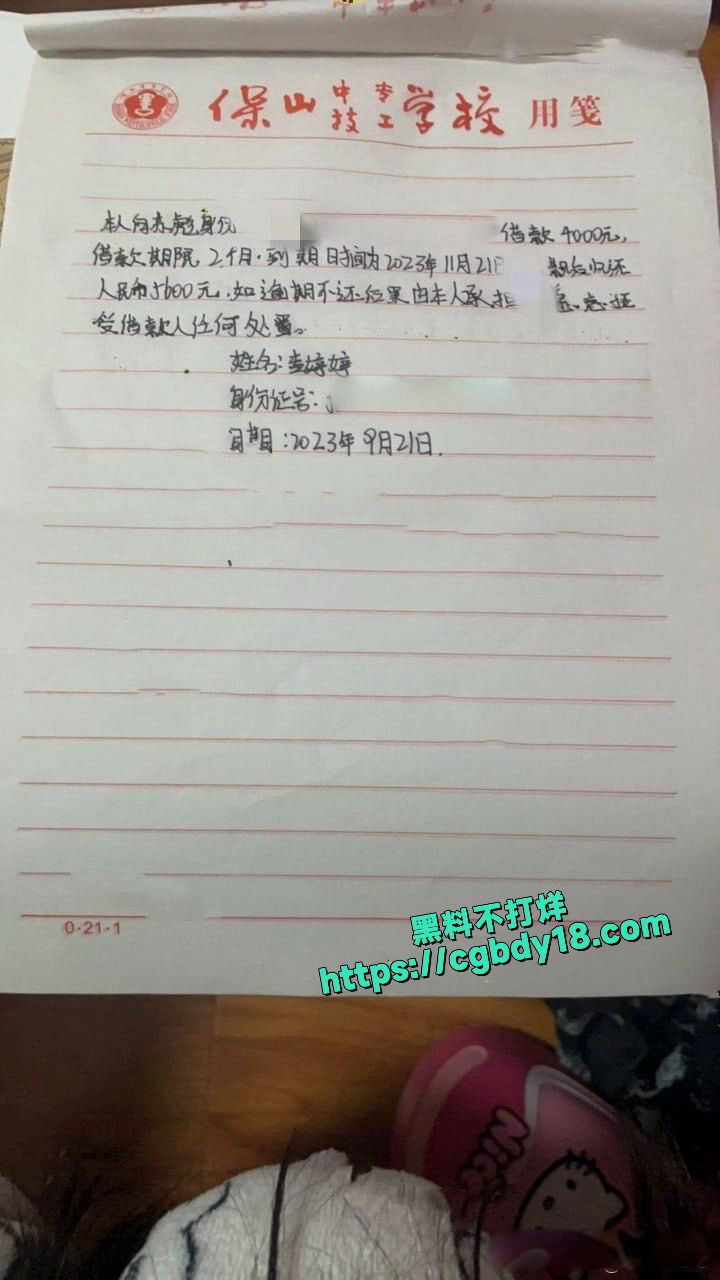 保山中专技工学校用笺
本人向 彪身份 借款4000元,
借款期限2个月.到期日时间为2023年11月21日 归还
人民币5600元,如逾期不还后果由本人承担
受借款人任何处置。
姓名:李婷婷
身份证号:
日期:2023年9月21日.
0·21·1
黑料不打烊
https://cgbdy18.com
Nice